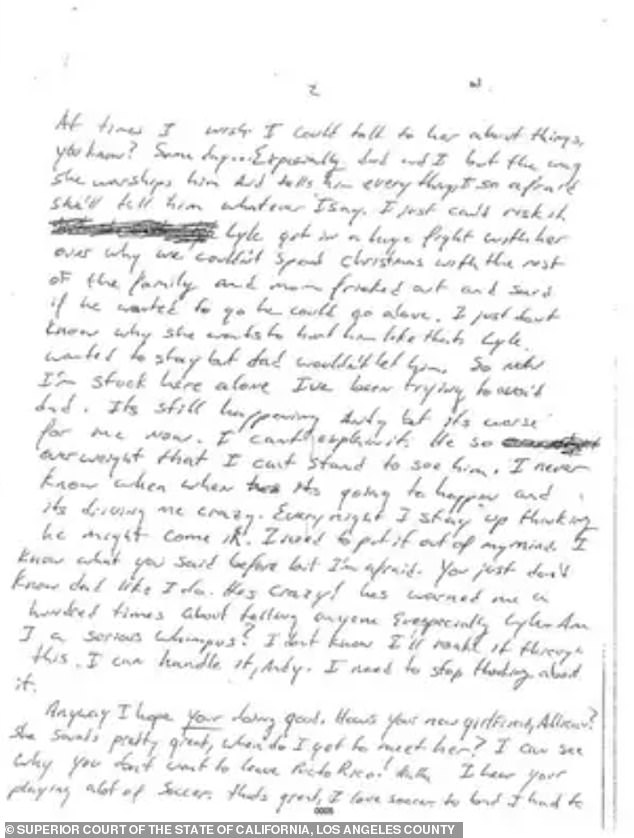 2
At times I wish I could talk to her about things,
you know? Some day... Especially dad and I but the way
she worships him and tells him everything I so afraid
she'll tell him whatever I say. I just can't risk it.
Lyle got in a huge fight with her
over why we couldn't spend Christmas with the rest
of the family and mom freaked out and said
if he wanted to go he could go alone. I just dont
know why she wants to hurt him like that. Lyle
wanted to stay but dad wouldn't let him. So now
I'm stuck here alone I've been trying to avoid
dad. Its still happening Andy but its worse
for me now. I can't explain it. He so
overweight that I cant stand to see him. I never
know when when its going to happen and
its driving me crazy. Every night I stay up thinking
he might come in. I need to put it out of my mind. I
know what you said before but I'm afraid. You just don't
know dad like I do. Hes crazy! hes warned me a
hundred times about telling anyone especially Lyle. Am
I a serious whimpus? I dont know I'll make it through
this. I can handle it, Andy. I need to stop thinking about
it.
Anyway I hope your doing good. Hows your new girlfriend, Allison?
She sounds pretty great, when do I get to meet her? I can see
why you dont want to leave Puerto Rico! I hear your
playing alot of soccer. thats great, I love soccer to but I had to
© SUPERIOR COURT OF THE STATE OF CALIFORNIA, LOS ANGELES COUNTY